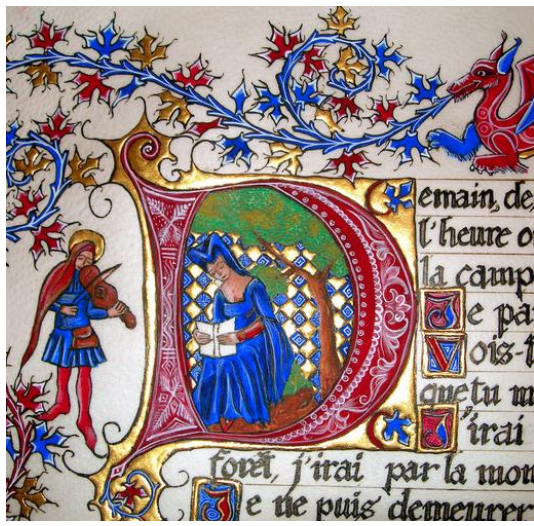 Demain, de
l'heure o
la camp
Je pa
Vois-t
que tu m
J'irai
forêt, j'irai par la mon
Je ne puis demeurer